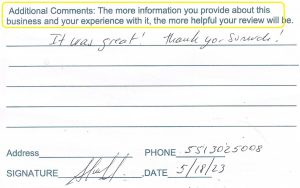 Additional Comments: The more information you provide about this
business and your experience with it, the more helpful your review will be.
It was great! Thank you
Address PHONE 5513025008
SIGNATURE DATE 5/18/23